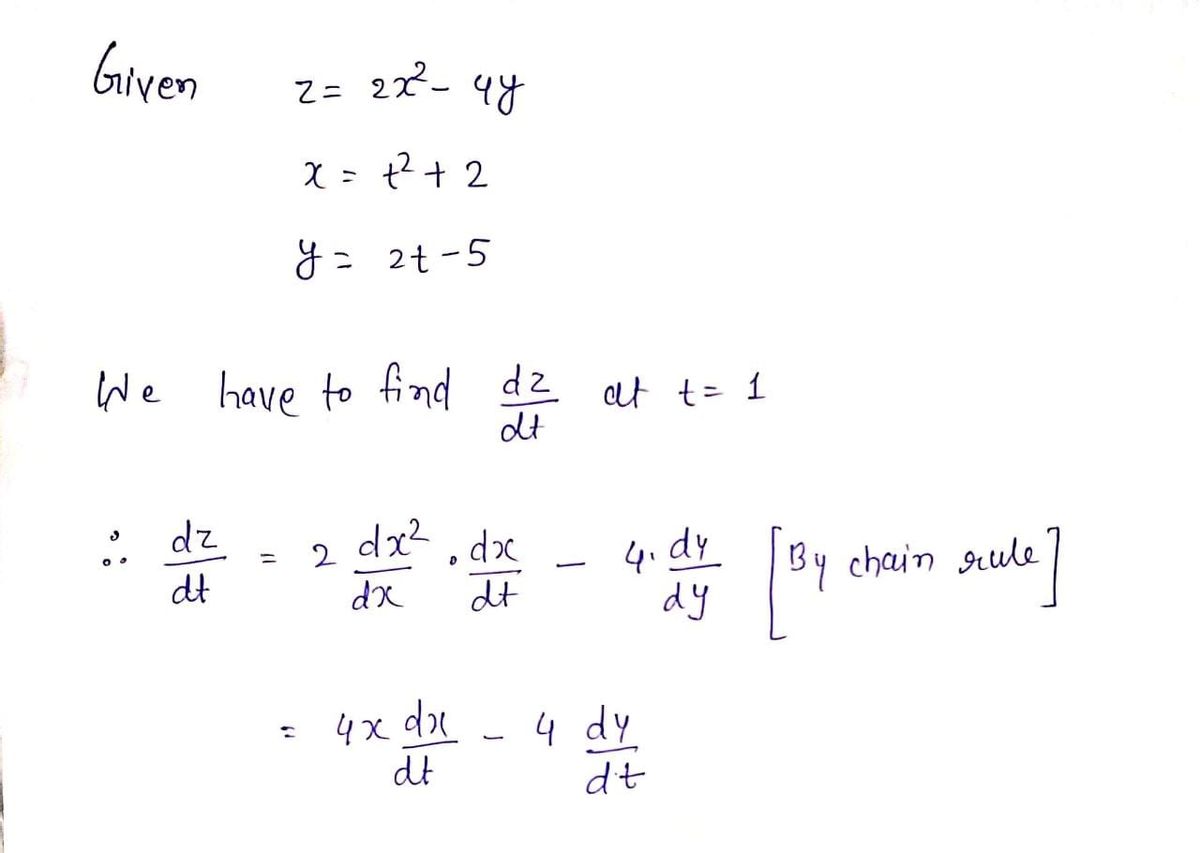 Given z = 2x² - 4y
x = t² + 2
y = 2t - 5
We have to find dz/dt at t = 1
∴ dz/dt = 2 dx²/dx . dx/dt - 4. dy/dy [By chain rule]
= 4x dx/dt - 4 dy/dt